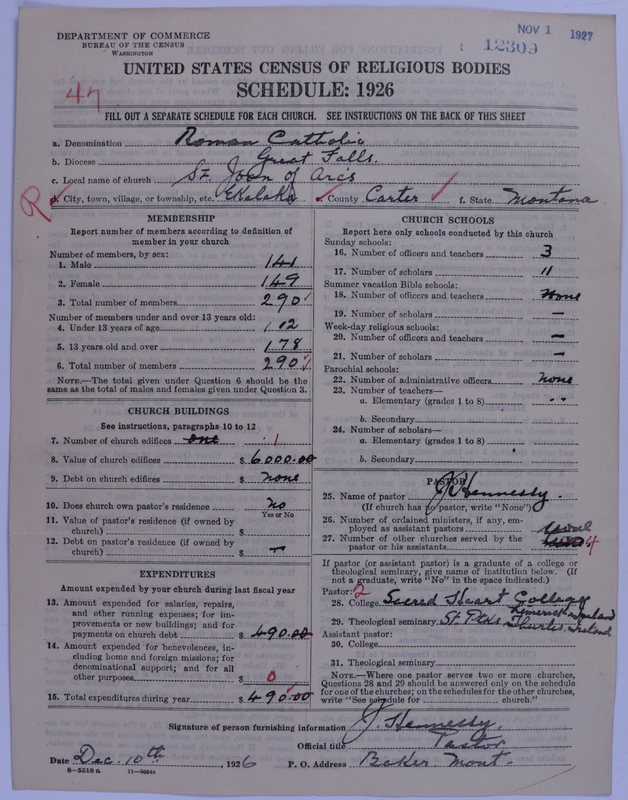 DEPARTMENT OF COMMERCE
BUREAU OF THE CENSUS
WASHINGTON
NOV 1 1927
12309
47
UNITED STATES CENSUS OF RELIGIOUS BODIES
SCHEDULE: 1926
FILL OUT A SEPARATE SCHEDULE FOR EACH CHURCH. SEE INSTRUCTIONS ON THE BACK OF THIS SHEET
a. Denomination Roman Catholic
b. Diocese Great Falls.
c. Local name of church St. Joan of Arcs
R
d. City, town, village, or township, etc. Ekalaka e. County Carter f. State Montana
MEMBERSHIP
Report number of members according to definition of
member in your church
Number of members, by sex:
1. Male 141
2. Female 149
3. Total number of members 290
Number of members under and over 13 years old:
4. Under 13 years of age 112
5. 13 years old and over 178
6. Total number of members 290
NOTE.—The total given under Question 6 should be
same as the total of males and females given under Question 3.
CHURCH BUILDINGS
See instructions, paragraphs 10 to 12
7. Number of church edifices one 1
8. Value of church edifices $ 6000.00
9. Debt on church edifices $ none
10. Does church own pastor's residence no
Yes or No
11. Value of pastor's residence (if owned by
church) $
12. Debt on pastor's residence (if owned by
church) $ —
EXPENDITURES
Amount expended by your church during last fiscal year
13. Amount expended for salaries, repairs,
and other running expenses; for im-
provements or new buildings; and for
payments on church debt $ 490.00
14. Amount expended for benevolences, in-
cluding home and foreign missions; for
denominational support; and for all
other purposes $ 0
15. Total expenditures during year $ 490.00
CHURCH SCHOOLS
Report here only schools conducted by this church
Sunday schools:
16. Number of officers and teachers 3
17. Number of scholars 11
Summer vacation Bible schools:
18. Number of officers and teachers none
19. Number of scholars —
Week-day religious schools:
20. Number of officers and teachers —
21. Number of scholars —
Parochial schools:
22. Number of administrative officers none
23. Number of teachers—
a. Elementary (grades 1 to 8)
b. Secondary
24. Number of scholars—
a. Elementary (grades 1 to 8)
b. Secondary
PASTOR
25. Name of pastor J Hennessy.
(If church has no pastor, write "None")
26. Number of ordained ministers, if any, em-
ployed as assistant pastors
27. Number of other churches served by the
pastor or his assistants 4
If pastor (or assistant pastor) is a graduate of a college or
theological seminary, give name of institution below. (If
not a graduate, write "No" in the space indicated.)
Pastor: 2
28. College Sacred Heart College
Limerick Ireland
29. Theological seminary St Pats Thurles Ireland
Assistant pastor:
30. College
31. Theological seminary
NOTE.—Where one pastor serves two or more churches,
Questions 28 and 29 should be answered only on the schedule
for one of the churches; on the schedules for the other churches,
write "See schedule for church."
Signature of person furnishing information J. Hennessy,
Official title Pastor
Date Dec. 10th, 1926 P. O. Address Baker Mont.
8—5518 a